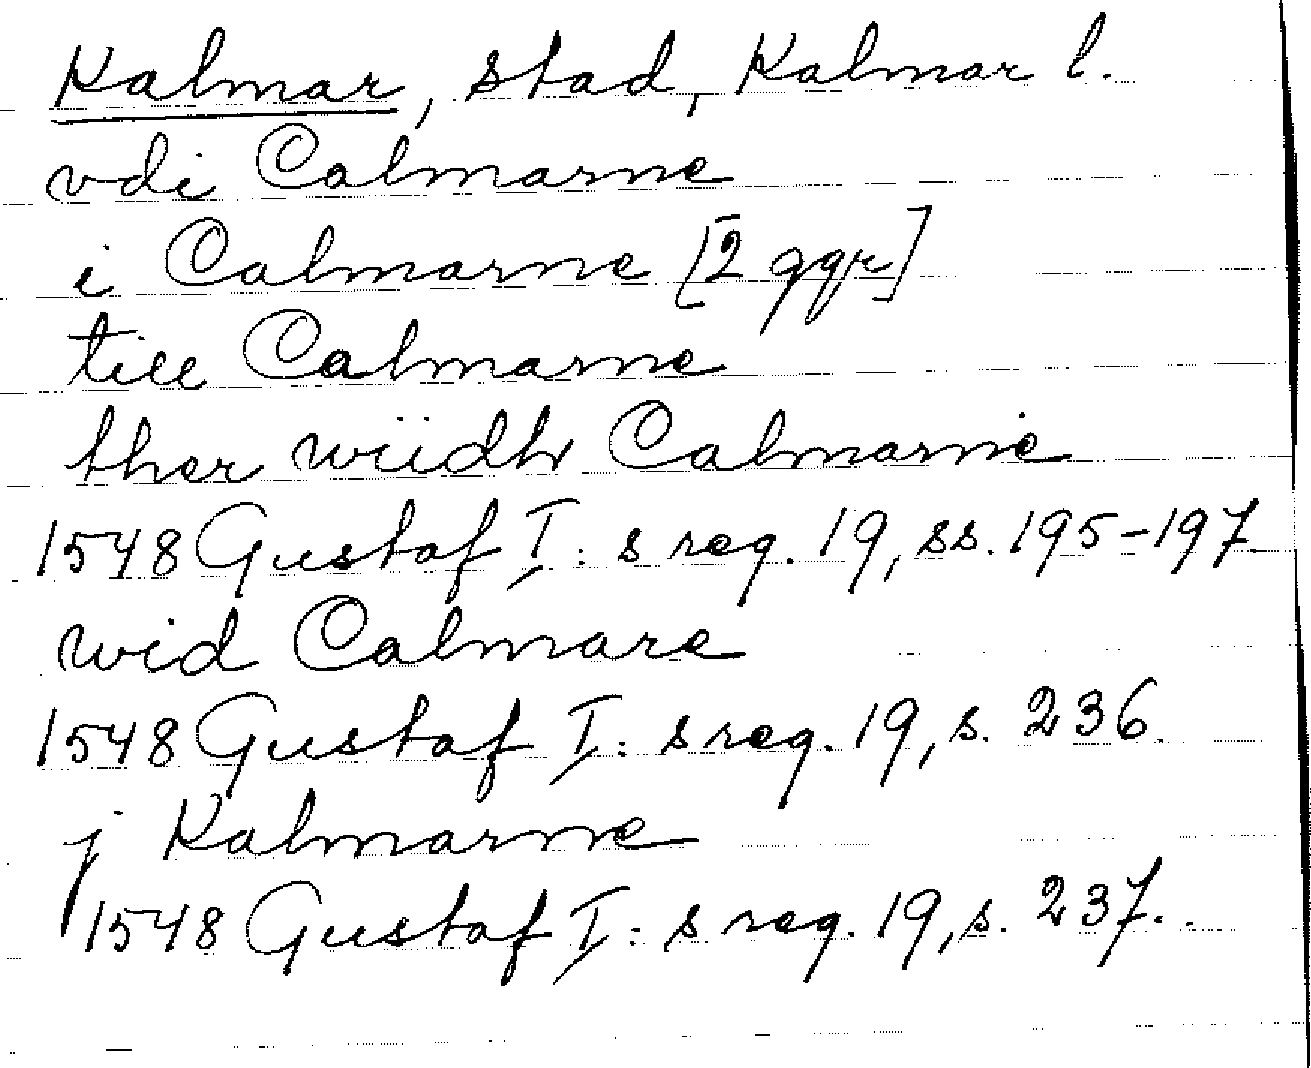 Kalmar, stad, Kalmar l.
vdi Calmarne
i Calmarne [2 ggr]
till Calmarne
ther wiidh Calmarne
1548 Gustaf I: s reg. 19, ss. 195-197
wid Calmare
1548 Gustaf I: s reg. 19, s. 236.
j Kalmarne
1548 Gustaf I: s reg. 19, s. 237.